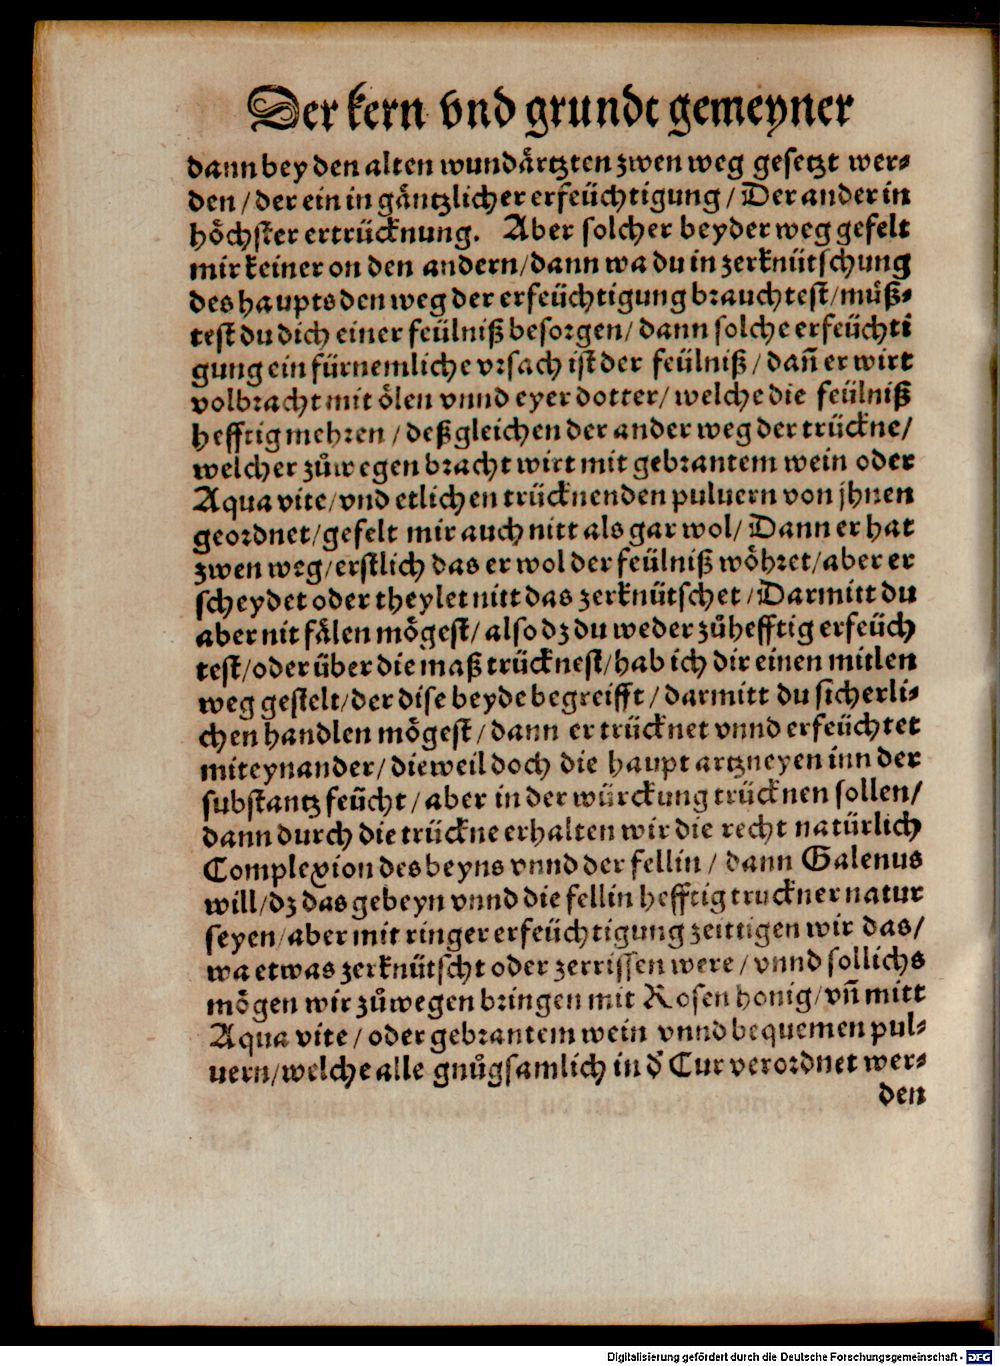 Der kern vnd grundt gemeyner
dann bey den alten wundaͤrtzten zwen weg gesetzt wer⸗
den / der ein in gaͤntzlicher erfeuͤchtigung / Der ander in
hoͤchster ertruͤcknung. Aber solcher beyder weg gefelt
mir keiner on den andern / dann wa du in zerknuͤtschung
des haupts den weg der erfeuͤchtigung brauchtest / muͤß⸗
test du dich einer feuͤlniß besorgen / dann solche erfeuͤchti
gung ein fuͤrnemliche vrsach ist der feuͤlniß / dañ er wirt
volbracht mit oͤlen vnnd eyer dotter / welche die feuͤlniß
hefftig mehren / deßgleichen der ander weg der truͤckne /
welcher zuͦwegen bracht wirt mit gebrantem wein oder
Aqua vite / vnd etlichen truͤcknenden puluern von jhnen
geordnet / gefelt mir auch nitt als gar wol / Dann er hat
zwen weg / erstlich das er wol der feuͤlniß woͤhret / aber er
scheydet oder theylet nitt das zerknuͤtschet / Darmitt du
aber nit faͤlen moͤgest / also dz du weder zuͦhefftig erfeuͤch
test / oder uͤber die maß truͤcknest / hab ich dir einen mitlen
weg gestelt / der dise beyde begreifft / darmitt du sicherli⸗
chen handlen moͤgest / dann er truͤcknet vnnd erfeuͤchtet
miteynander / dieweil doch die haupt artzneyen inn der
substantz feuͤcht / aber in der wuͤrckung truͤcknen sollen /
dann durch die truͤckne erhalten wir die recht natuͤrlich
Complexion des beyns vnnd der fellin / dann Galenus
will / dz das gebeyn vnnd die fellin hefftig truckner natur
seyen / aber mit ringer erfeuͤchtigung zeittigen wir das /
wa etwas zerknuͤtscht oder zerrissen were / vnnd sollichs
moͤgen wir zuͦwegen bringen mit Rosen honig / vñ mitt
Aqua vite / oder gebrantem wein vnnd bequemen pul⸗
uern / welche alle gnuͦgsamlich in d̕ Cur verordnet wer⸗
den
Digitalisierung gefördert durch die Deutsche Forschungsgemeinschaft - DFG